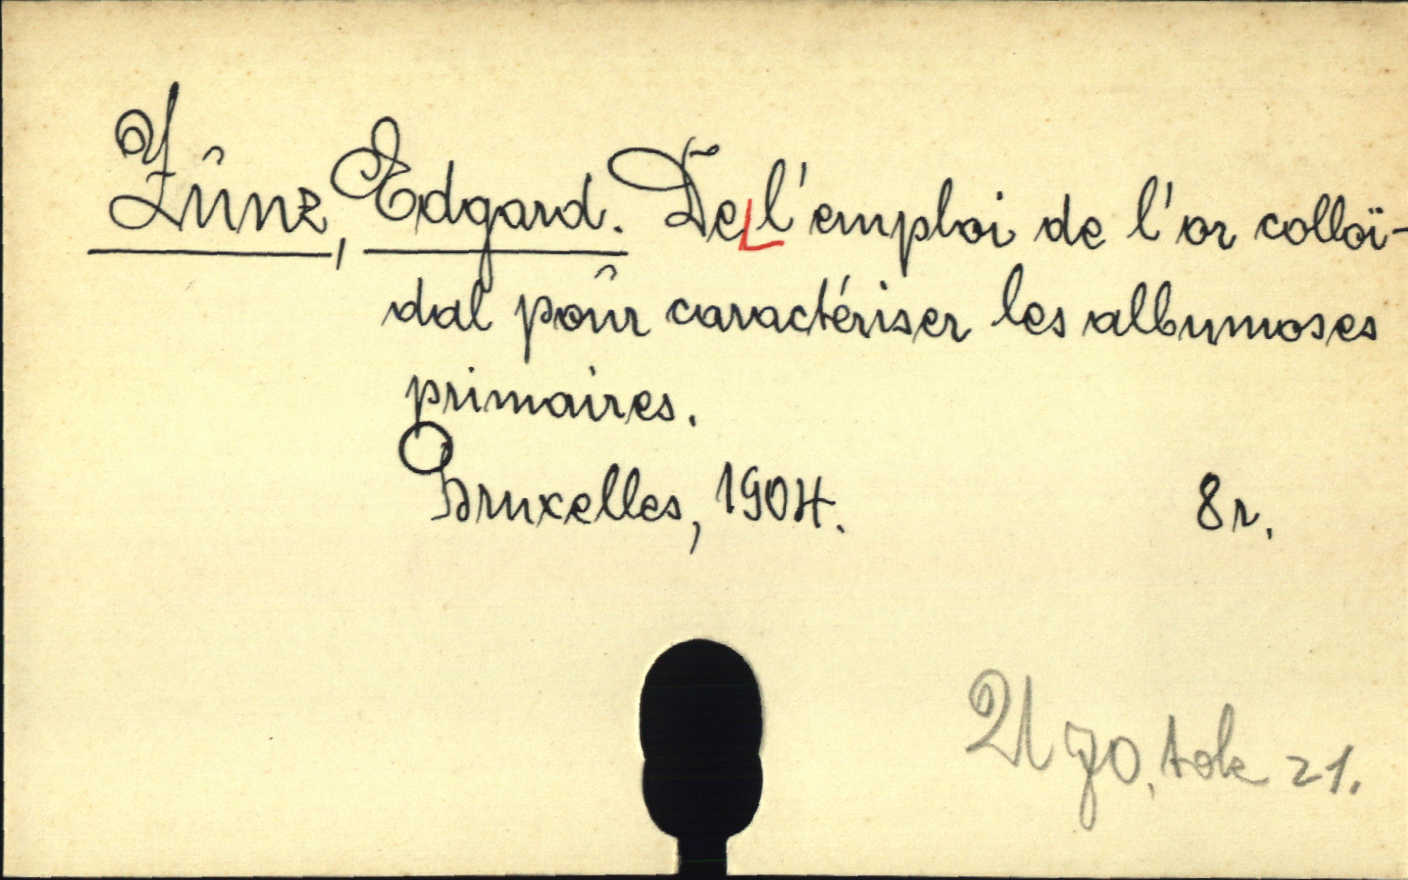 Zûnz, Edgard. De l'emploi de l'or colloï-
dal poûr caractériser les albumoses
primaires.
Bruxelles, 1904. 8r.
21 70, tok 21.